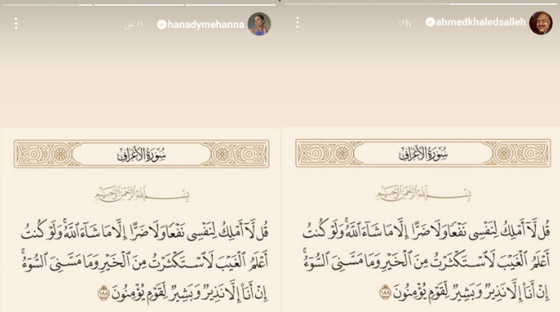 hanadymehanna
١١ س
سُورَةُ الْأَعْرَافِ
بِسْمِ اللَّهِ الرَّحْمَٰنِ الرَّحِيمِ
قُل لَّآ أَمْلِكُ لِنَفْسِى نَفْعًا وَلَا ضَرًّا إِلَّا مَا شَآءَ ٱللَّهُ ۚ وَلَوْ كُنتُ
أَعْلَمُ ٱلْغَيْبَ لَٱسْتَكْثَرْتُ مِنَ ٱلْخَيْرِ وَمَا مَسَّنِىَ ٱلسُّوٓءُ ۚ
إِنْ أَنَا۠ إِلَّا نَذِيرٌ وَبَشِيرٌ لِّقَوْمٍ يُؤْمِنُونَ ١٨٨
ahmedkhaledsalleh
سُورَةُ الْأَعْرَافِ
بِسْمِ اللَّهِ الرَّحْمَٰنِ الرَّحِيمِ
قُل لَّآ أَمْلِكُ لِنَفْسِى نَفْعًا وَلَا ضَرًّا إِلَّا مَا شَآءَ ٱللَّهُ ۚ وَلَوْ كُنتُ
أَعْلَمُ ٱلْغَيْبَ لَٱسْتَكْثَرْتُ مِنَ ٱلْخَيْرِ وَمَا مَسَّنِىَ ٱلسُّوٓءُ ۚ
إِنْ أَنَا۠ إِلَّا نَذِيرٌ وَبَشِيرٌ لِّقَوْمٍ يُؤْمِنُونَ ١٨٨